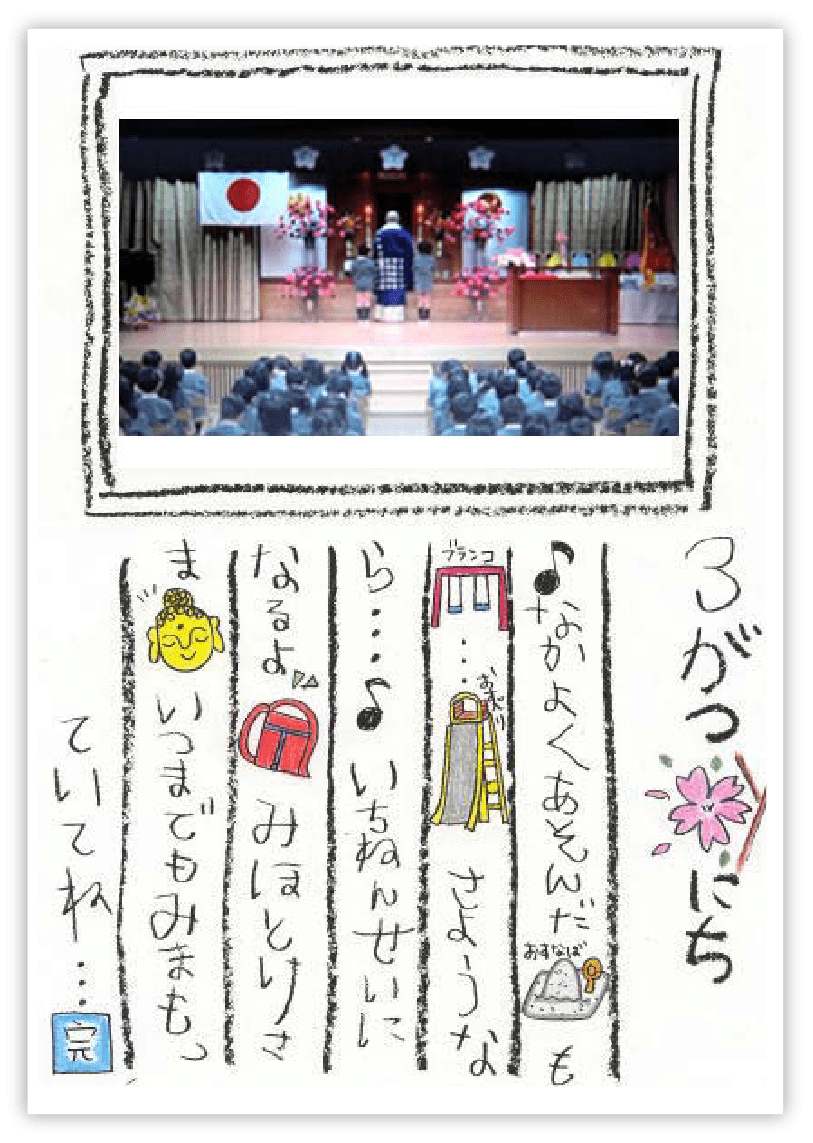 3がつにち
♪なかよくあそんだ
おすなば
も
ブランコ
…
おすべり
さような
ら…♪いちねんせいに
なるよ
みほとけさ
ま
いつまでもみまもっ
ていてね…
完